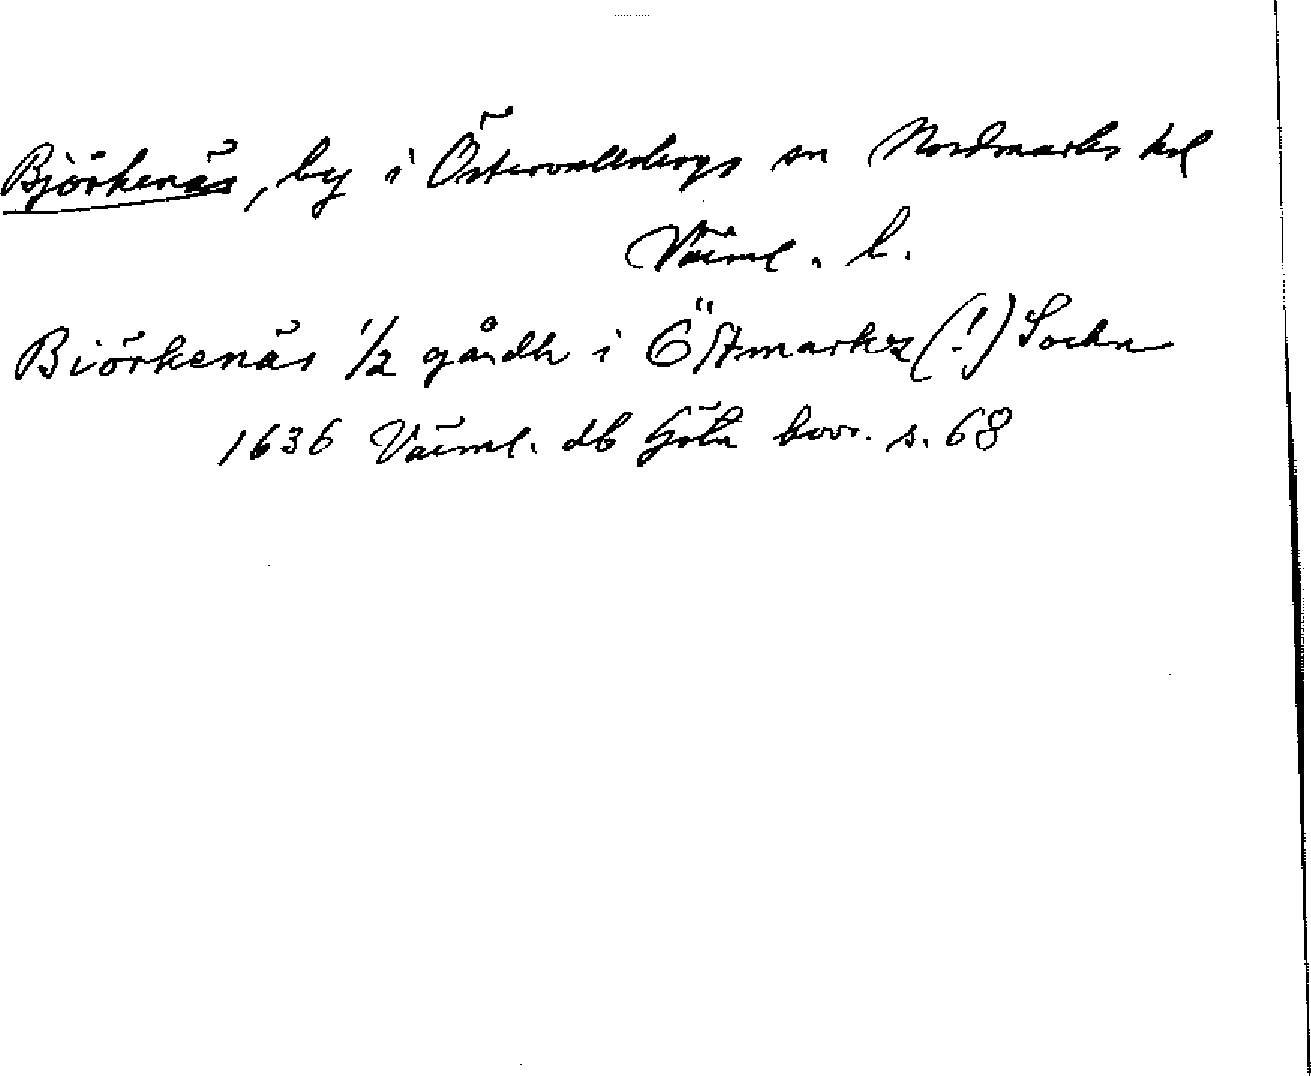 Björkenäs, by i Östervallskogs sn Nordmarks hd
Värml. l.
Biörkenäs 1/2 gårdh i Östmarkz (!) Sockn
1636 Värml. db Göta hovr. s. 68